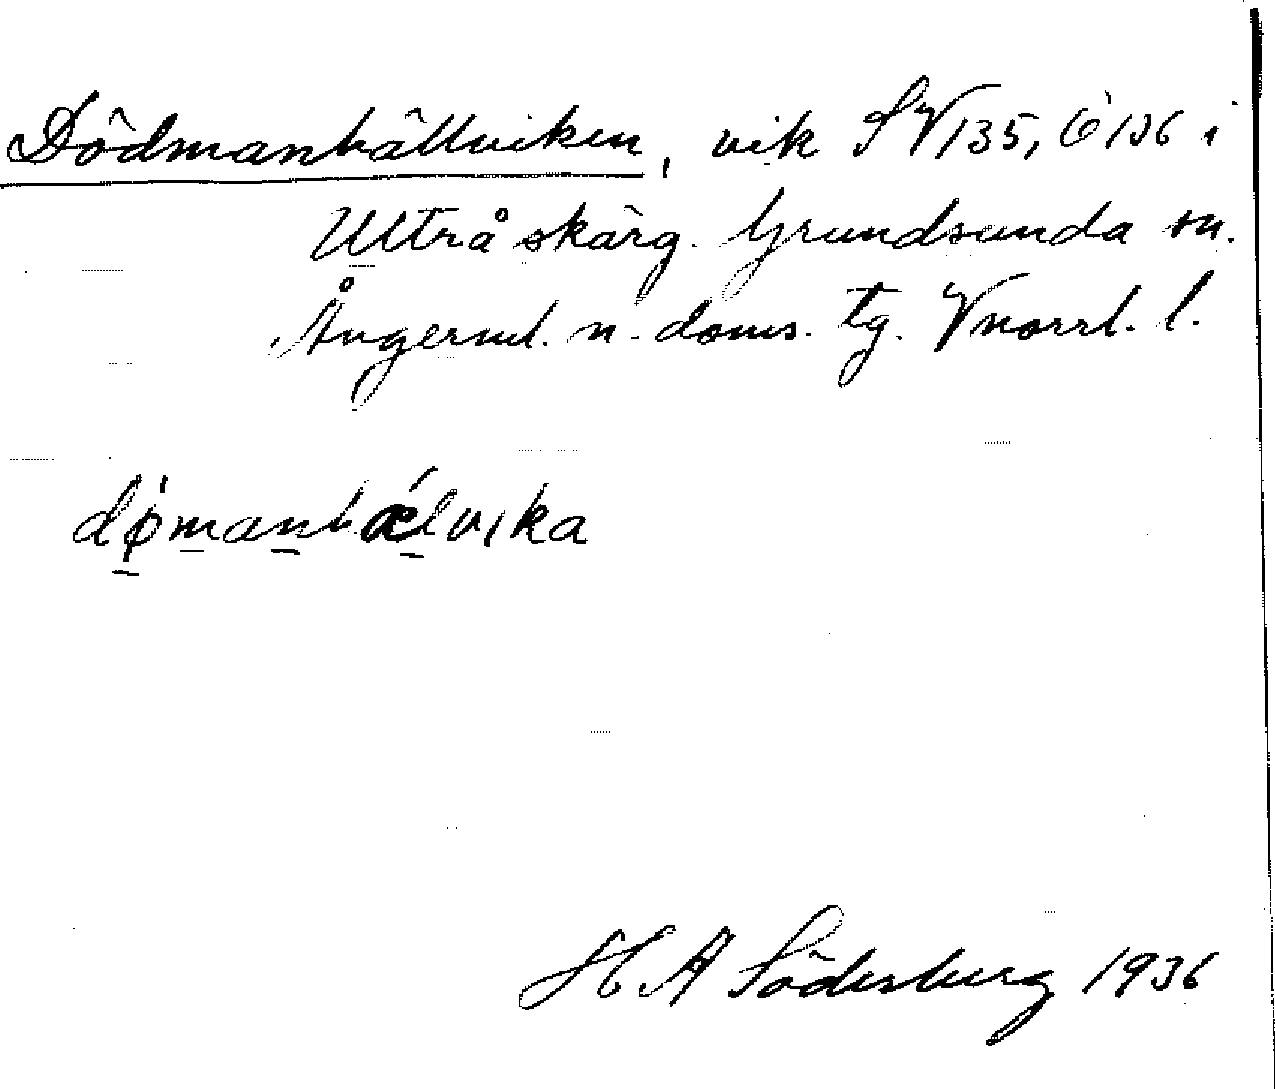 Dödmanhällviken, vik SV 135, Ö 136 i
Ultrå skärg. Grundsunda sn.
Ångerml. n. doms. tg. Vnorrl. l.
dømanhǽlvika
H A Söderberg 1936